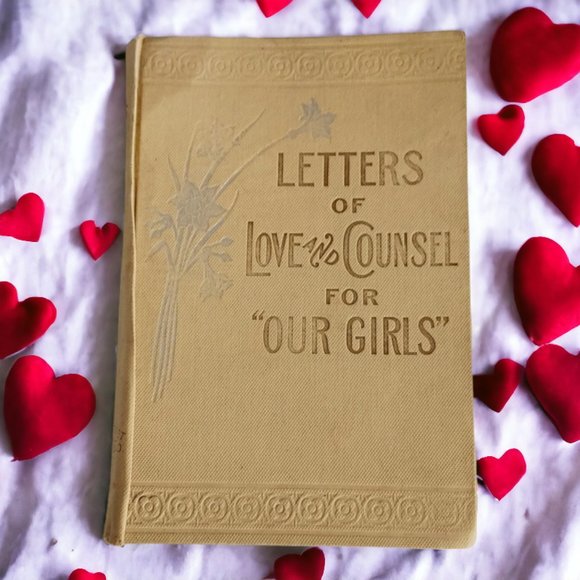 LETTERS
OF
LOVE AND COUNSEL
FOR
"OUR GIRLS"